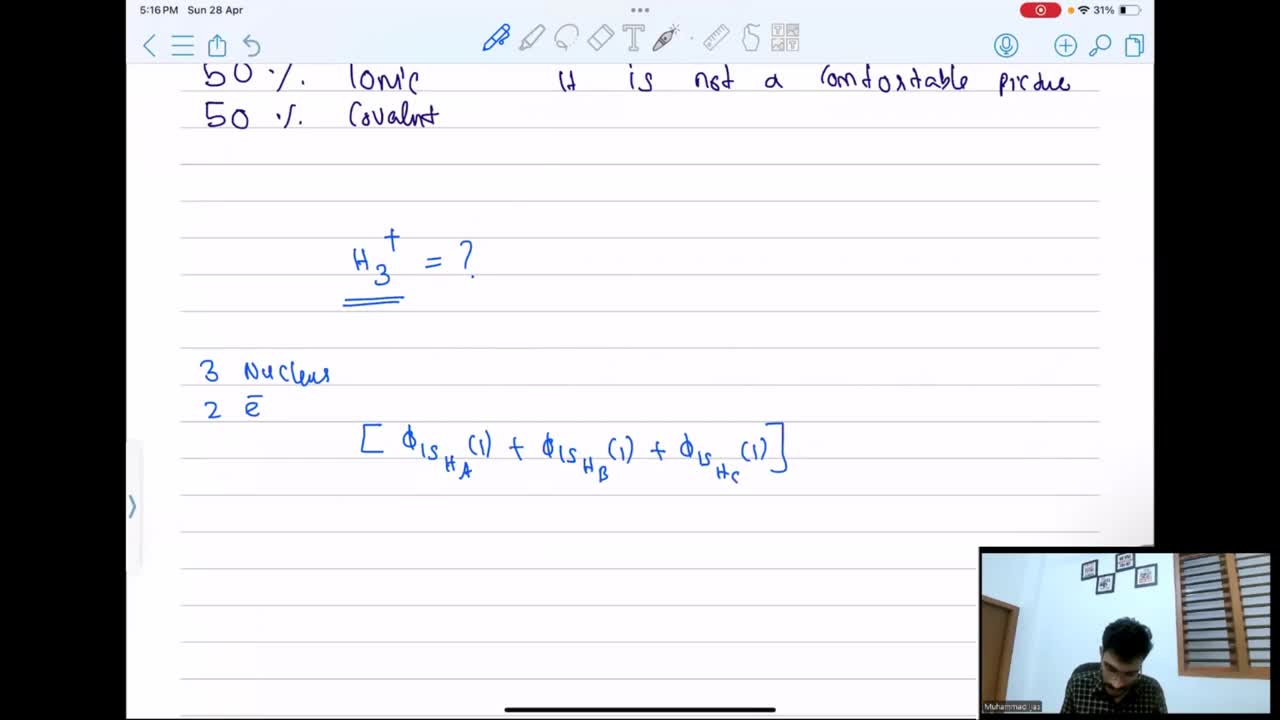 5:16 PM Sun 28 Apr
31%
50 %. Ionic It is not a comfortable picdue
50 %. Covalnt
H₃⁺ = ?
3 Nucleus
2 e̅
[ ϕ1s_H_A(1) + ϕ1s_H_B(1) + ϕ1s_H_C(1) ]
Muhammad Ijas